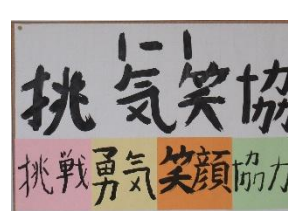 1-1
挑気笑協
挑戦 勇気 笑顔 協力